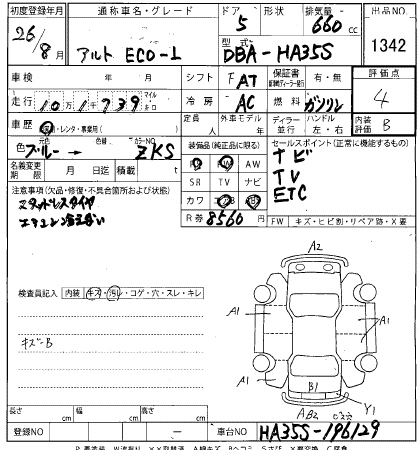 初度登録年月 通称車名・グレード ドア 形状 排気量 出品NO
26/8月 アルト ECO-L 5 660 cc 1342
型式 DBA-HA35S
車検 年 月 シフト F AT 保証書 有・無 評価点
走行 10万1千739 マイル 冷房 AC 燃料 ガソリン 4
車歴 自・レンタ・事業用( ) 定員 人 外車モデル 年 ディーラー 並行 ハンドル 左・右 内装評価 B
色 ブルー→ 色替 カラーNO ZKS 装備品(純正品に限る) セールスポイント(正常に機能するもの)
PS PW AW ナビ
名義変更期限 月 日迄 積載 t SR TV ナビ TV
注意事項(欠品・修復・不具合箇所および状態) カワ エアB ABS ETC
スタッドレスタイヤ R券 8560 円 FW キズ・ヒビ割・リペア跡・X要
エアコン冷え悪い
A2
検査員記入 内装 キズ・汚レ・コゲ・穴・スレ・キレ
A1 A1
キズ-B
A1 A1
B1
AB2 Y1
長さ cm 幅 cm 高さ cm
登録NO 車台NO HA35S-196129